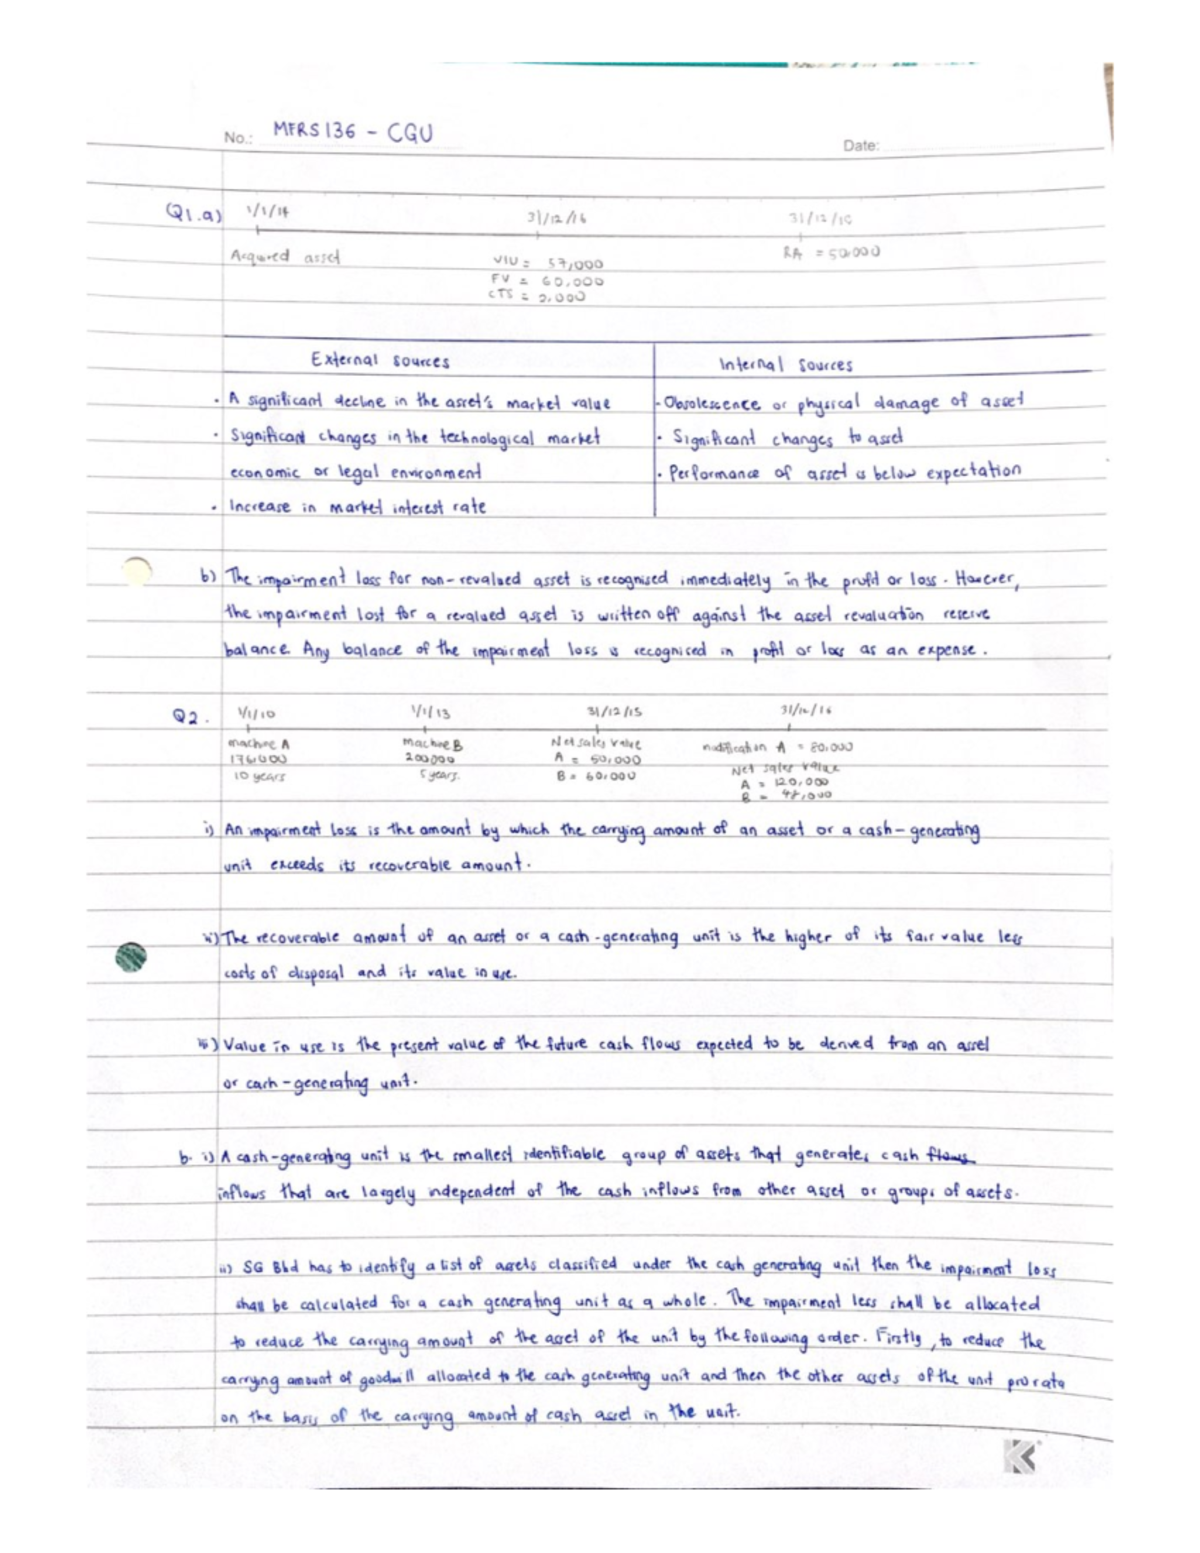 No.: MFRS 136 - CGU
Date:
Q1.a) 1/1/14 31/12/16
Acquired asset VIU = 57,000 RA = 50,000
FV = 60,000
CTS = 2,000
External sources Internal sources
· A significant decline in the asset's market value · Obsolescence or physical damage of asset
· Significant changes in the technological market · Significant changes to asset
economic or legal environment · Performance of asset is below expectation
· Increase in market interest rate
b) The impairment loss for non-revalued asset is recognised immediately in the profit or loss. However,
the impairment lost for a revalued asset is written off against the asset revaluation reserve
balance. Any balance of the impairment loss is recognised in profit or loss as an expense.
Q2. 1/1/10 1/1/13 31/12/15 31/12/16
machine A machine B Net sales value modification A = 80,000
200,000 A = 50,000 Net sales value
10 years 5 years B = 60,000 A = 120,000
B = 48,000
i) An impairment loss is the amount by which the carrying amount of an asset or a cash-generating
unit exceeds its recoverable amount.
ii) The recoverable amount of an asset or a cash-generating unit is the higher of its fair value less
costs of disposal and its value in use.
iii) Value in use is the present value of the future cash flows expected to be derived from an asset
or cash-generating unit.
b. i) A cash-generating unit is the smallest identifiable group of assets that generates cash flows
inflows that are largely independent of the cash inflows from other asset or groups of assets.
ii) SG Bhd has to identify a list of assets classified under the cash generating unit then the impairment loss
shall be calculated for a cash generating unit as a whole. The impairment less shall be allocated
to reduce the carrying amount of the asset of the unit by the following order. Firstly, to reduce the
carrying amount of goodwill allocated to the cash generating unit and then the other assets of the unit pro rata
on the basis of the carrying amount of cash asset in the unit.
K